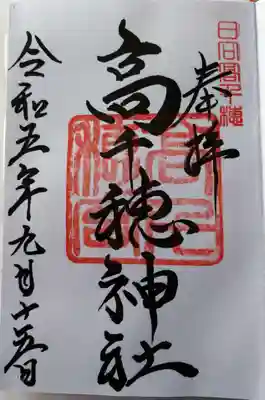 日向高千穂
奉拝
高千穂神社
令和五年九月十五日